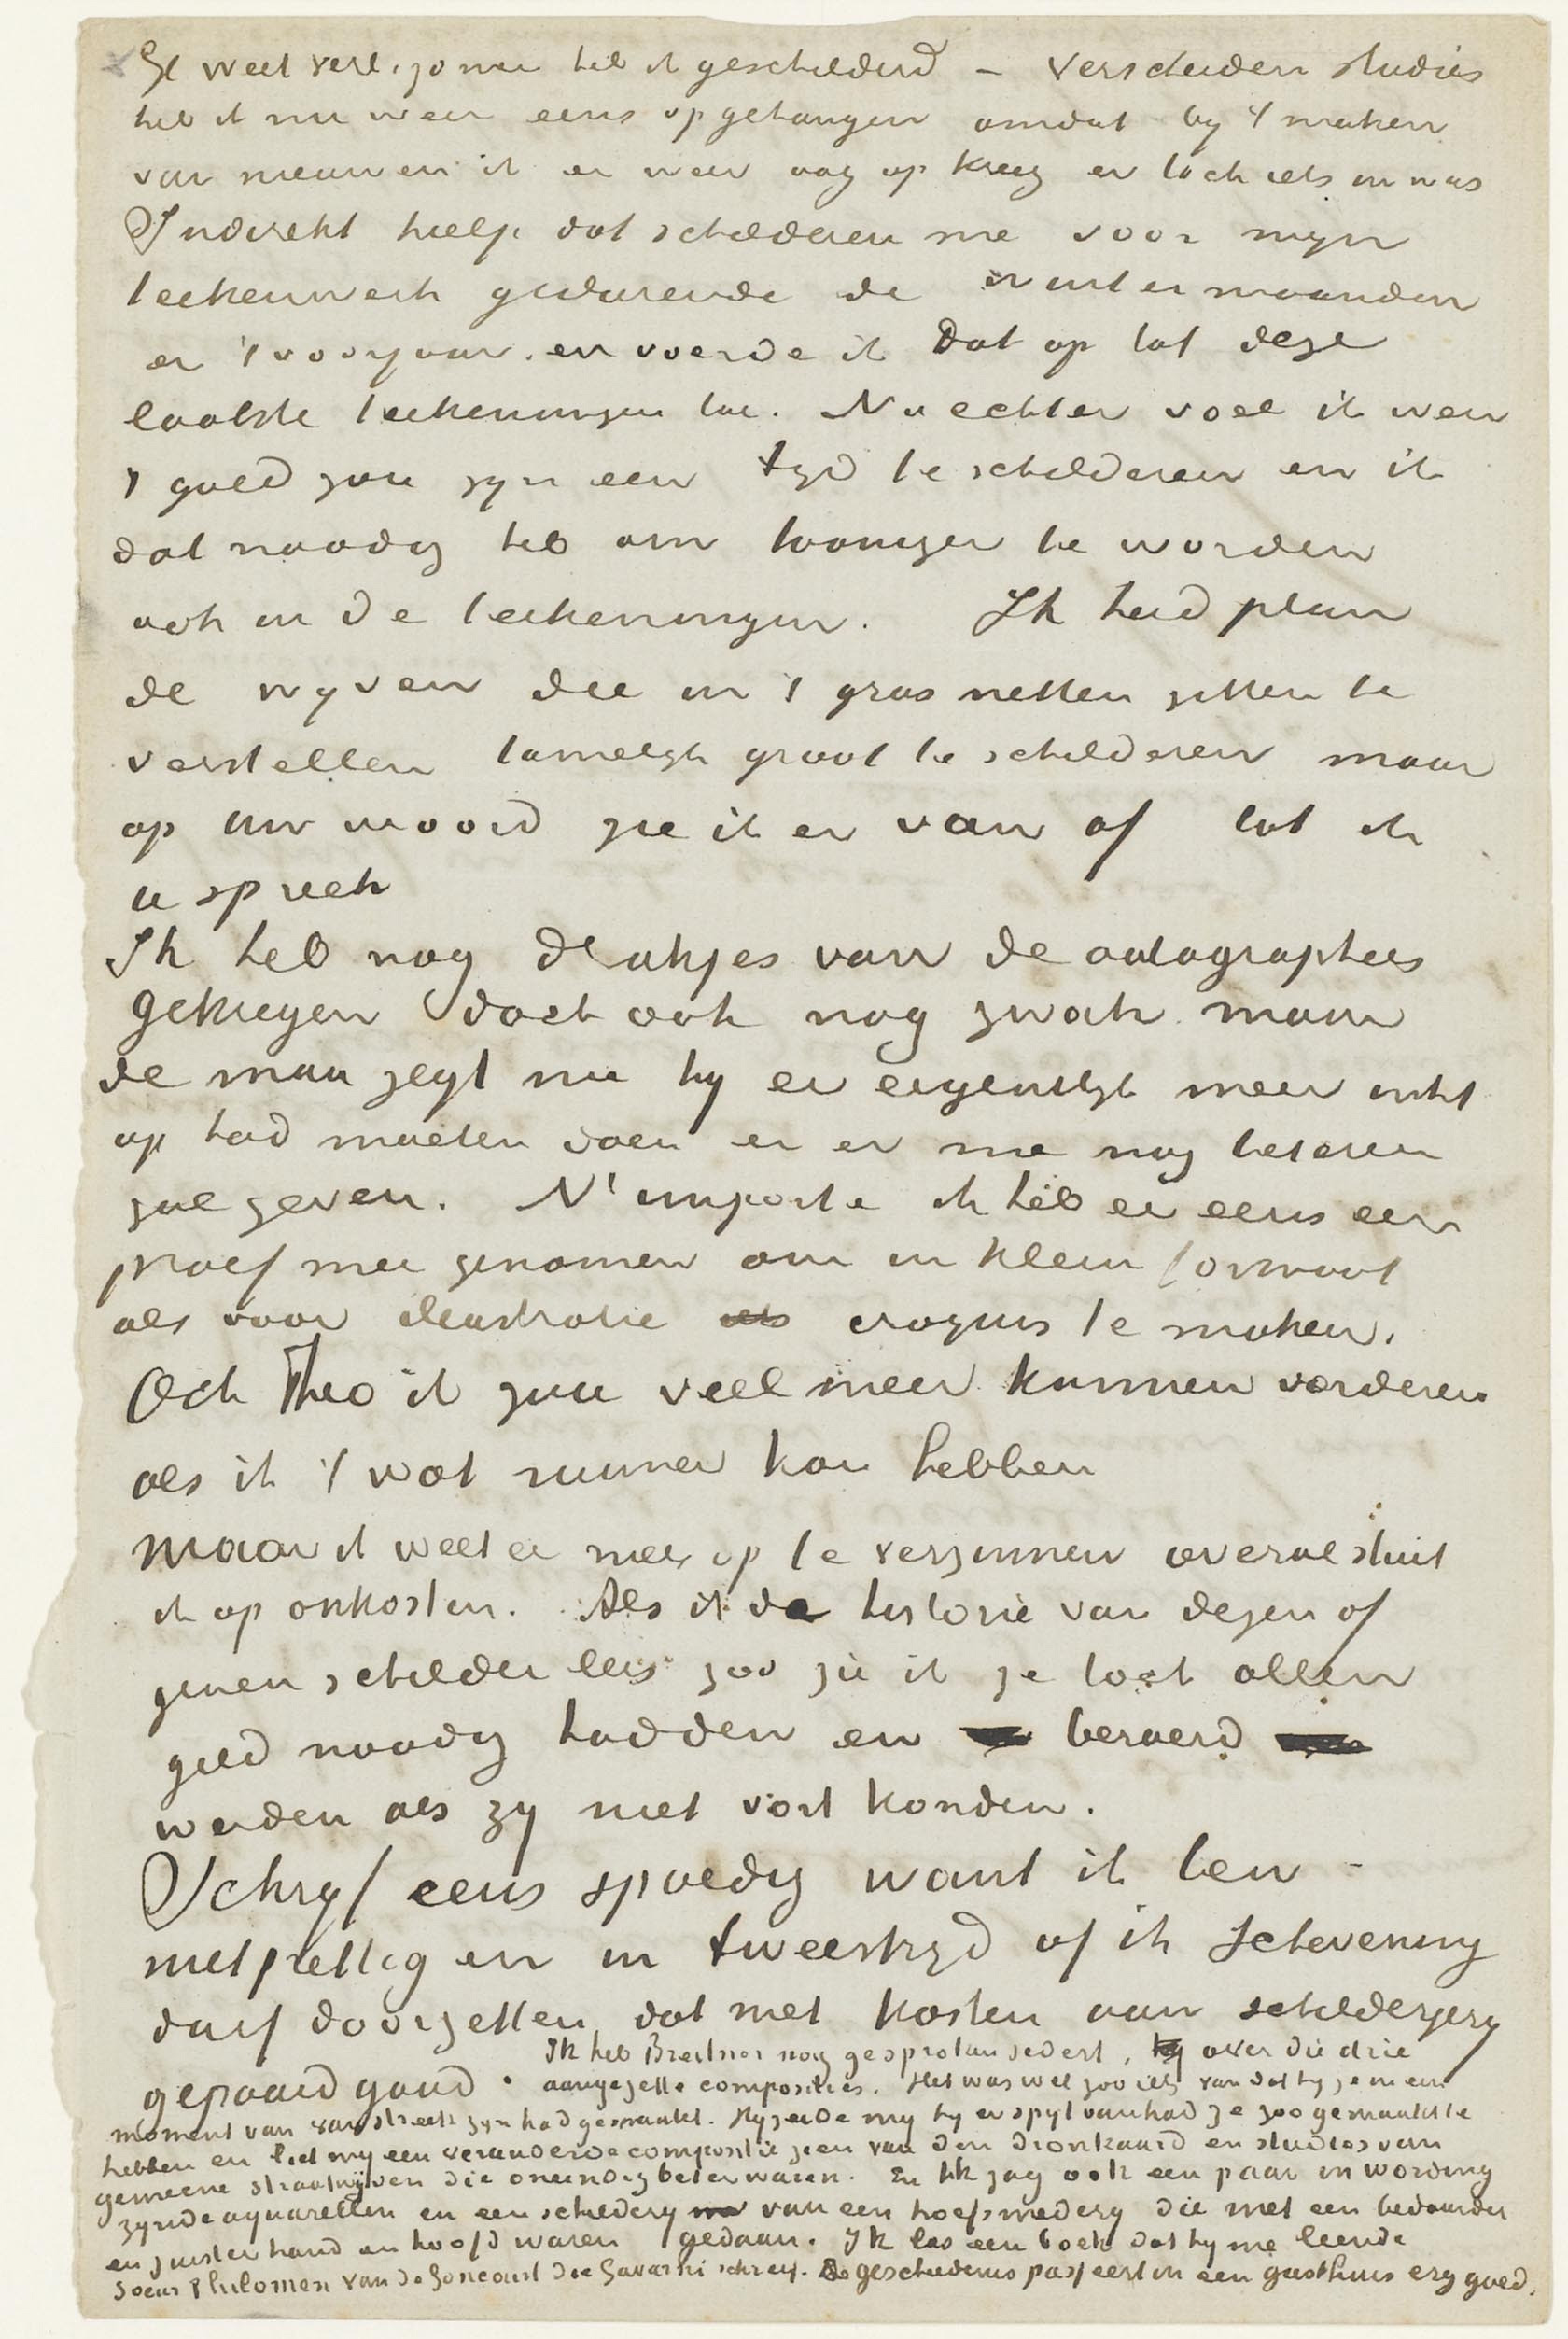 Ge weet verl. zomer heb ik geschilderd – verscheiden studies
heb ik nu weer eens opgehangen omdat by 't maken
van nieuwen ik er weer oog op kreeg er toch iets in was
Indirekt hielp dat schilderen me voor mijn
teekenwerk gedurende de wintermaanden
en 't voorjaar. en voerde ik dat op tot deze
laatste teekeningen toe. Nu echter voel ik weer
't goed zou zyn een tyd te schilderen en ik
dat noodig heb om tooniger te worden
ook in de teekeningen. Ik had plan
de wyven die in 't gras netten zitten te
verstellen tamelyk groot te schilderen maar
op uw woord zie ik er van af tot ik
u spreek
Ik heb nog drukjes van de autographies
gekregen doch ook nog zwak maar
de man zegt nu hy er eigentlyk meer inkt
op had moeten doen en er me nog beteren
zal geven. N'importe ik heb er eens een
proef mee genomen om in klein formaat
als voor illustratie als croquis te maken.
Och Theo ik zou veel meer kunnen vorderen
als ik 't wat ruimer kon hebben
maar ik weet er niets op te verzinnen overal stuit
ik op onkosten. Als ik de historie van dezen of
genen schilder lees zoo zie ik ze toch allen
geld noodig hadden en beroerd
werden als zy niet voort konden.
Schryf eens spoedig want ik ben –
niet prettig en in tweestryd of ik Schevening
durf doorzetten dat met kosten aan schildergery
gepaard gaad. Ik heb Breitner nog gesproken sedert, hy over die drie
aangezette composities. Het was wel zoo iets van dat hy ze in een
moment van van streek zyn had gemaakt. Hy zeide my hy er spyt van had ze zoo gemaakt te
hebben en liet my een veranderde compositie zien van den dronkaard en studies van
gemeene straatwyven die oneindig beter waren. En ik zag ook een paar in wording
zynde aquarellen en een schildery van een hoefsmedery die met een bedaarder
en juister hand en hoofd waren gedaan. Ik las een boek dat hy me leende
Soeur Philomene van de Goncourt die Gavarni schreef. De geschiedenis passeert in een gasthuis erg goed.